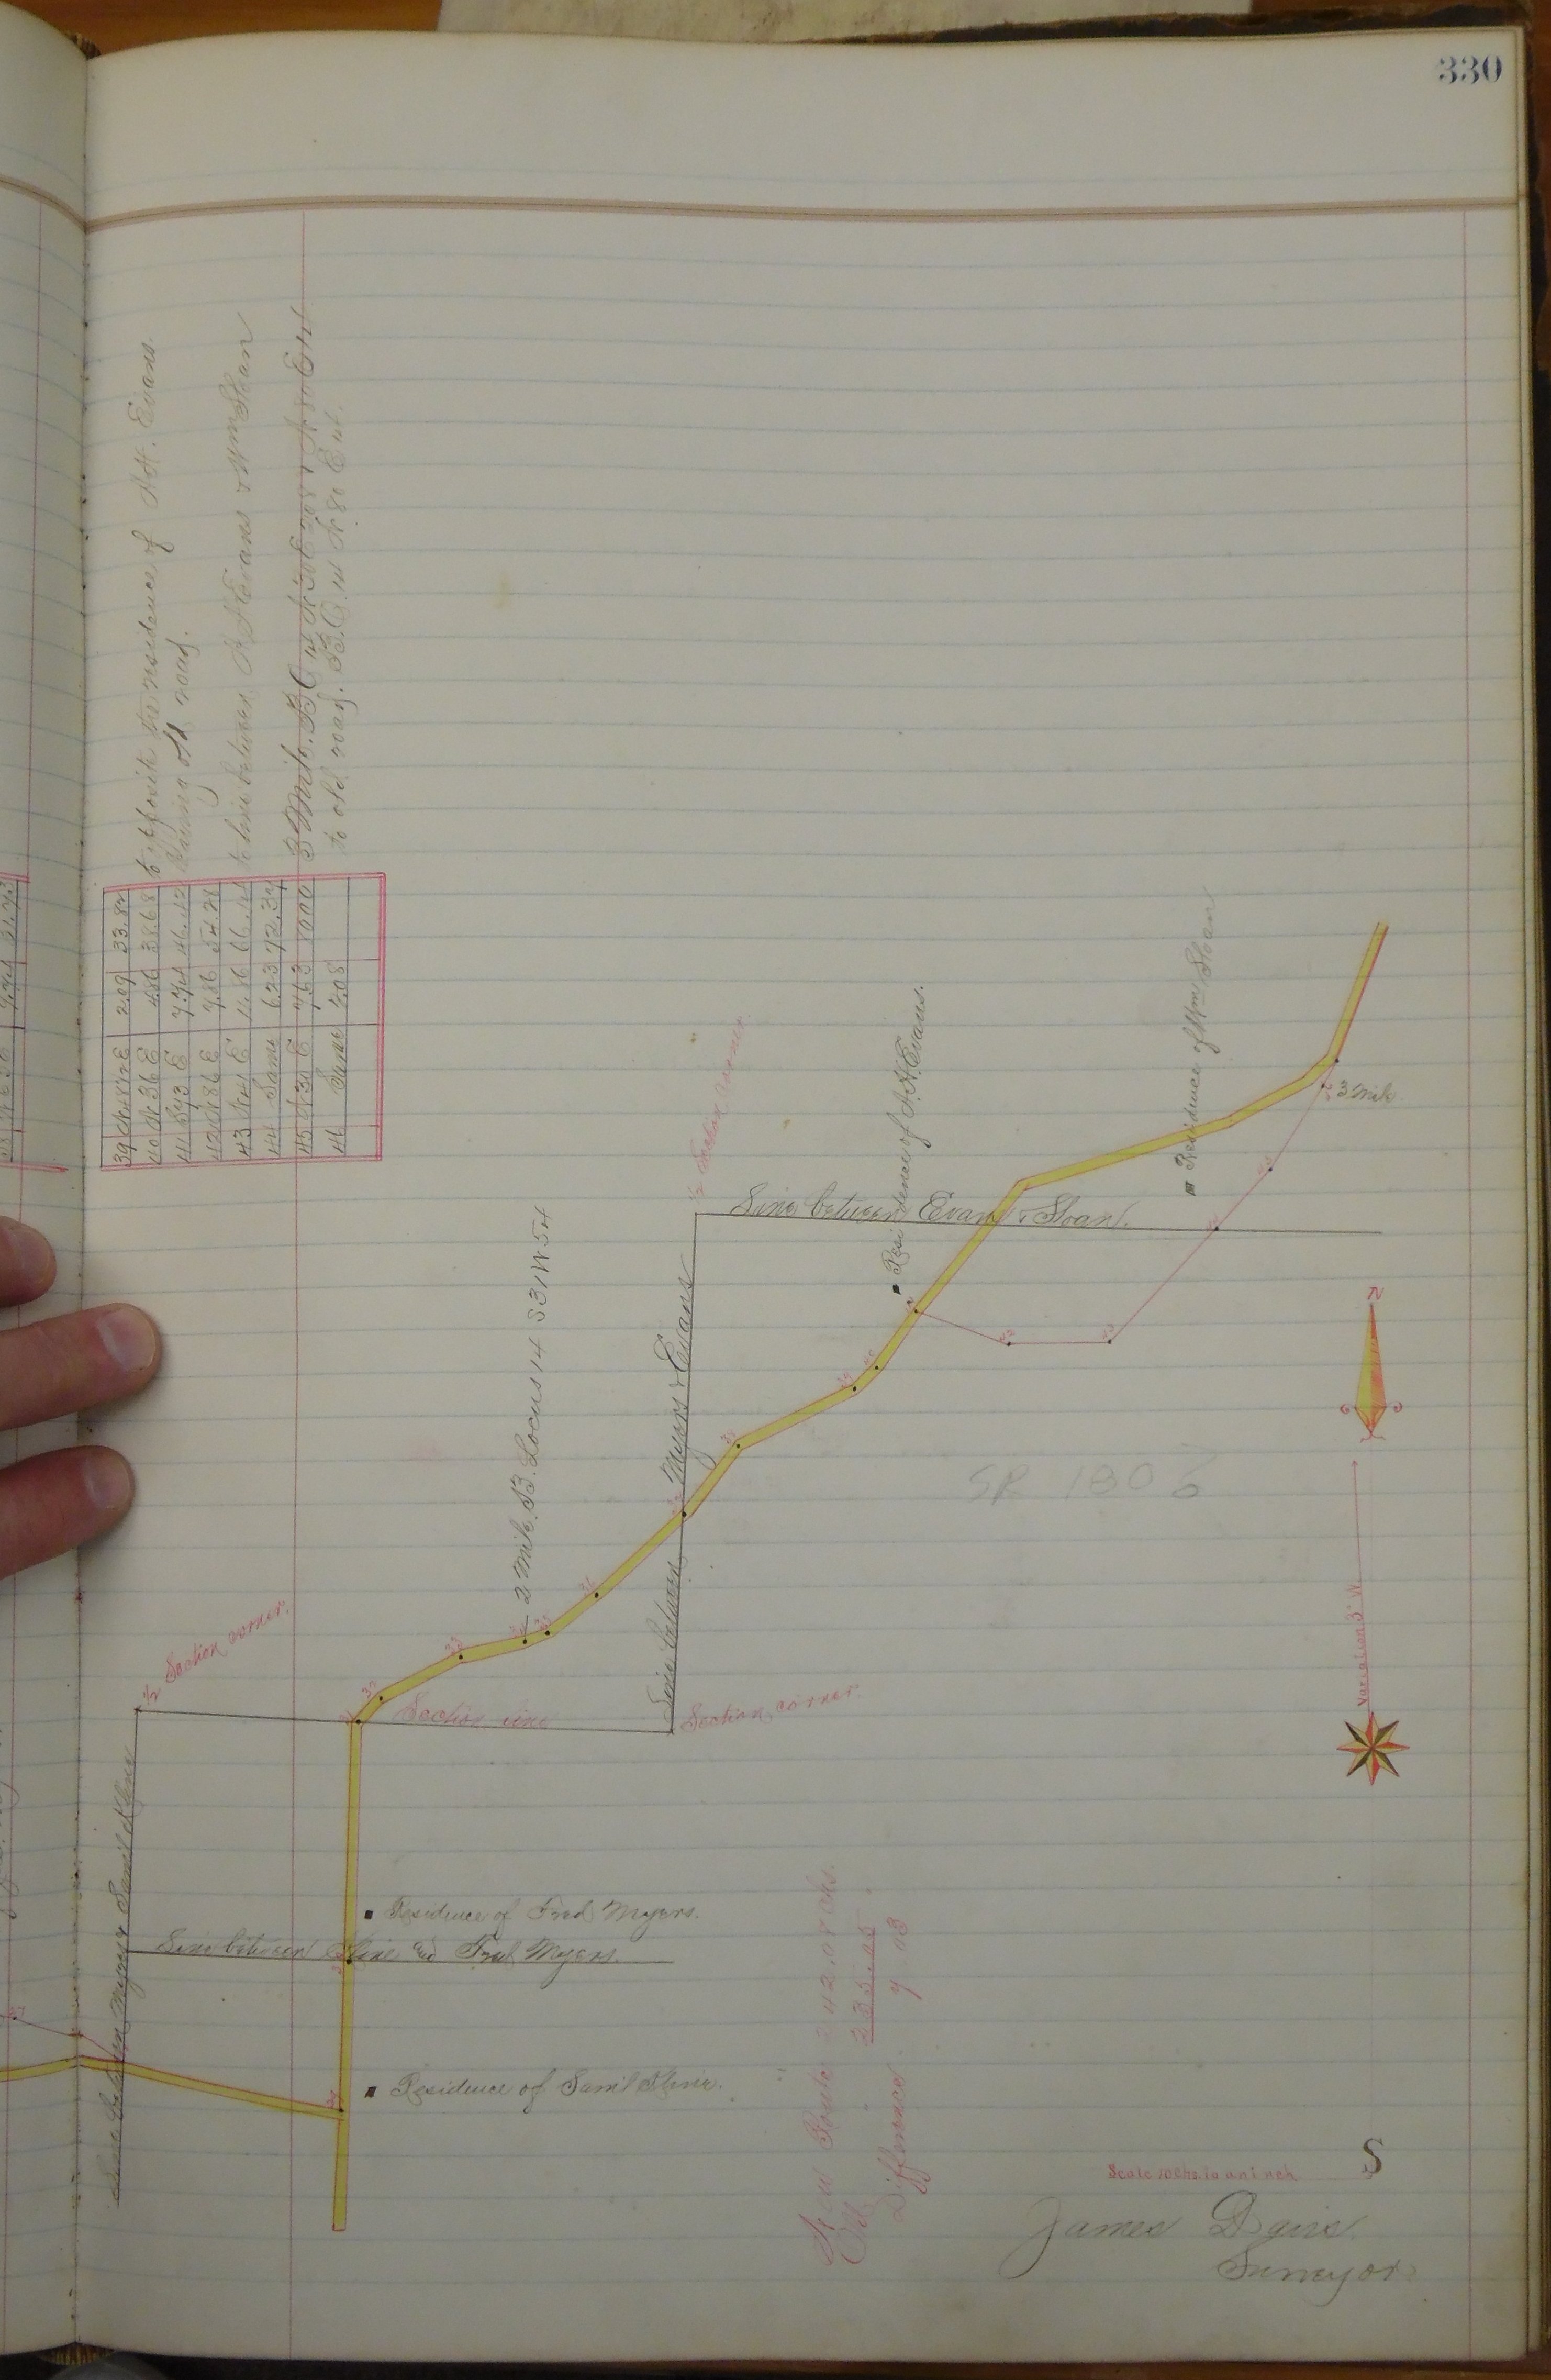 330
39 N 81 1/2 E 2.09 33.82
40 N 36 E 4.86 38.68 to opposite the residence of A.H. Evans.
41 S 73 E 7.74 46.42 leaving old road.
42 N 86 E 7.86 54.28
43 N 41 E 11.86 66.14 to line between A H Evans & Wm Sloan
44 Same 6.23 72.37
45 N 30 E 7.63 8000 3 Mile. B O 14 N 30 E 208 & N 80 E
46 Same 2.08 to old road. B.O. 14 N. 80 E
1/2 Section corner.
Residence of A.H. Evans.
Residence of Wm Sloan
3 Mile
Line between Evans & Sloan.
2 Mile. B. Locus 14 S 31 W 54
Line between Myers & Evans
N
SR 1806
1/2 Section corner.
Section line
Section corner.
Variation 3° W.
Line between Myers & Saml Kline
Residence of Fred Myers.
Line between Kline and Fred Myers.
Residence of Saml Kline.
New Route 242.08 chs.
Old 235.05
Difference 7.03
Scale 10 Chs. to an inch
S
James Davis.
Surveyor